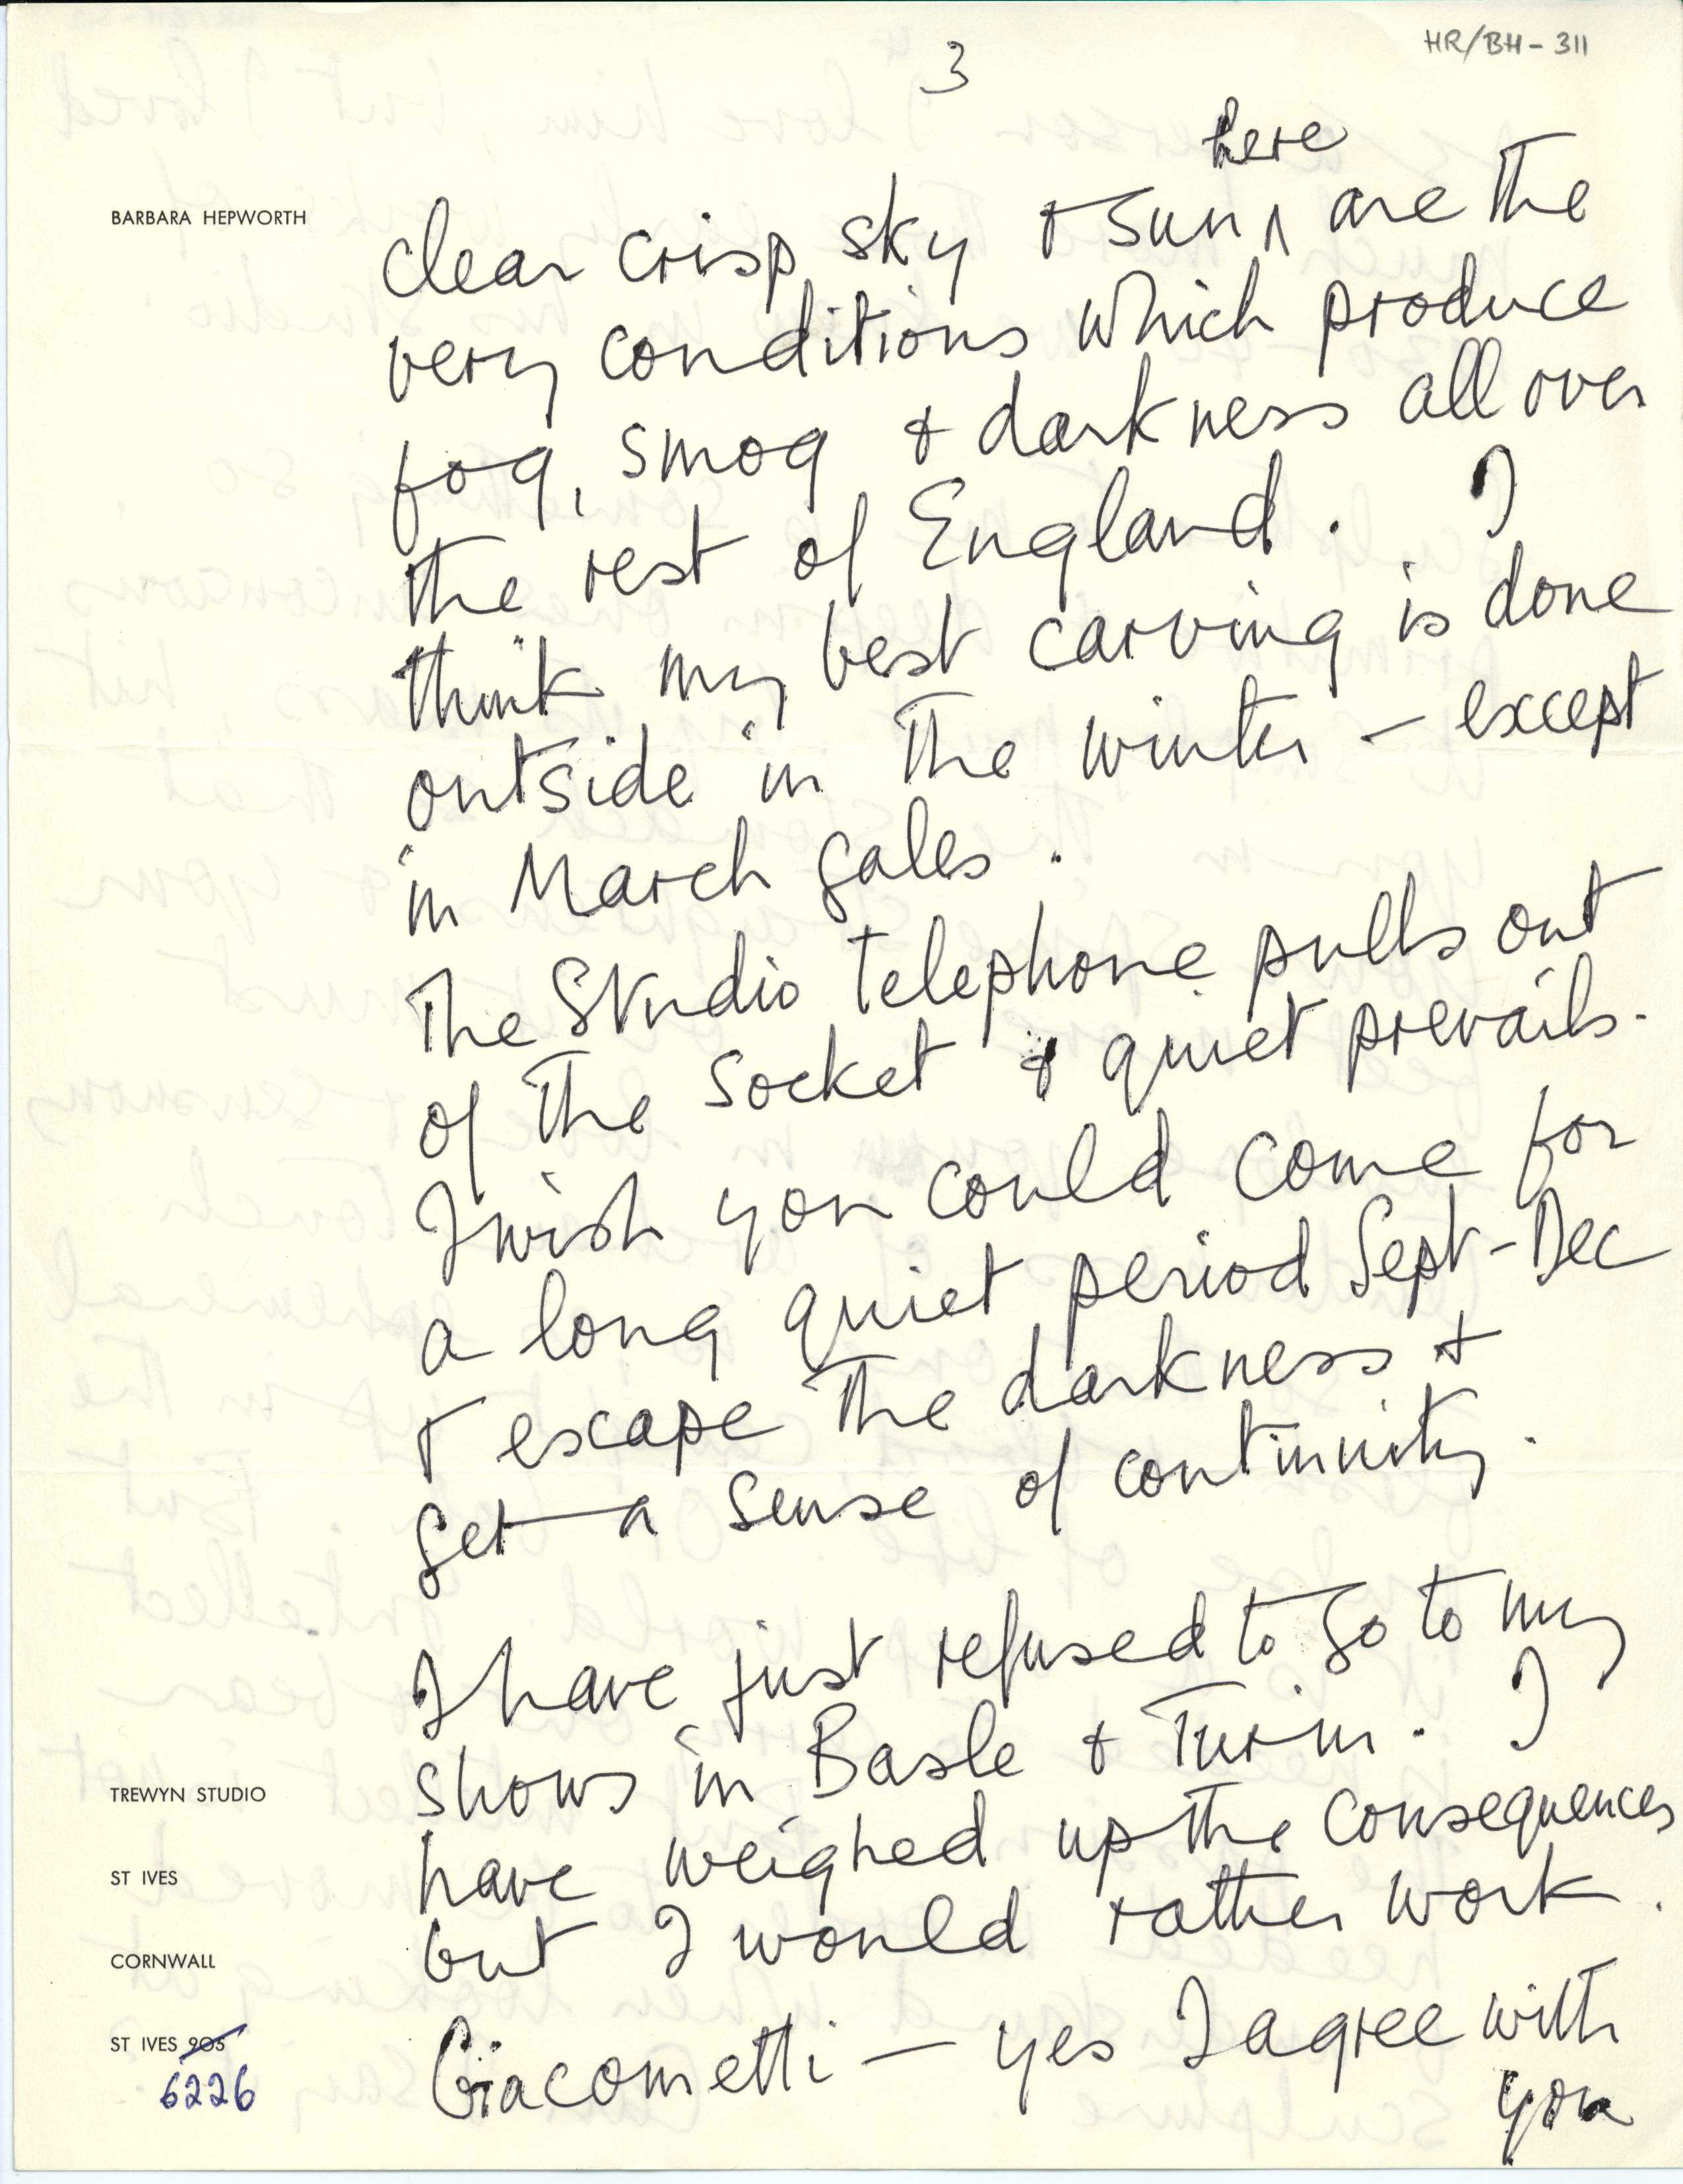 3
HR/BH - 311
BARBARA HEPWORTH
here
clear crisp sky + sun ∧ are the
very conditions which produce
fog, smog + darkness all over
the rest of England. I
think my best carving is done
outside in the winter – except
in March gales.
The Studio telephone pulls out
of the socket + quiet prevails.
I wish you could come for
a long quiet period Sept – Dec
+ escape the darkness +
get a sense of continuity.
I have just refused to go to my
shows in Basle + Turin. I
have weighed up the consequences
but I would rather work.
Giacometti – yes I agree with
you
TREWYN STUDIO
ST IVES
CORNWALL
ST IVES 905
6226